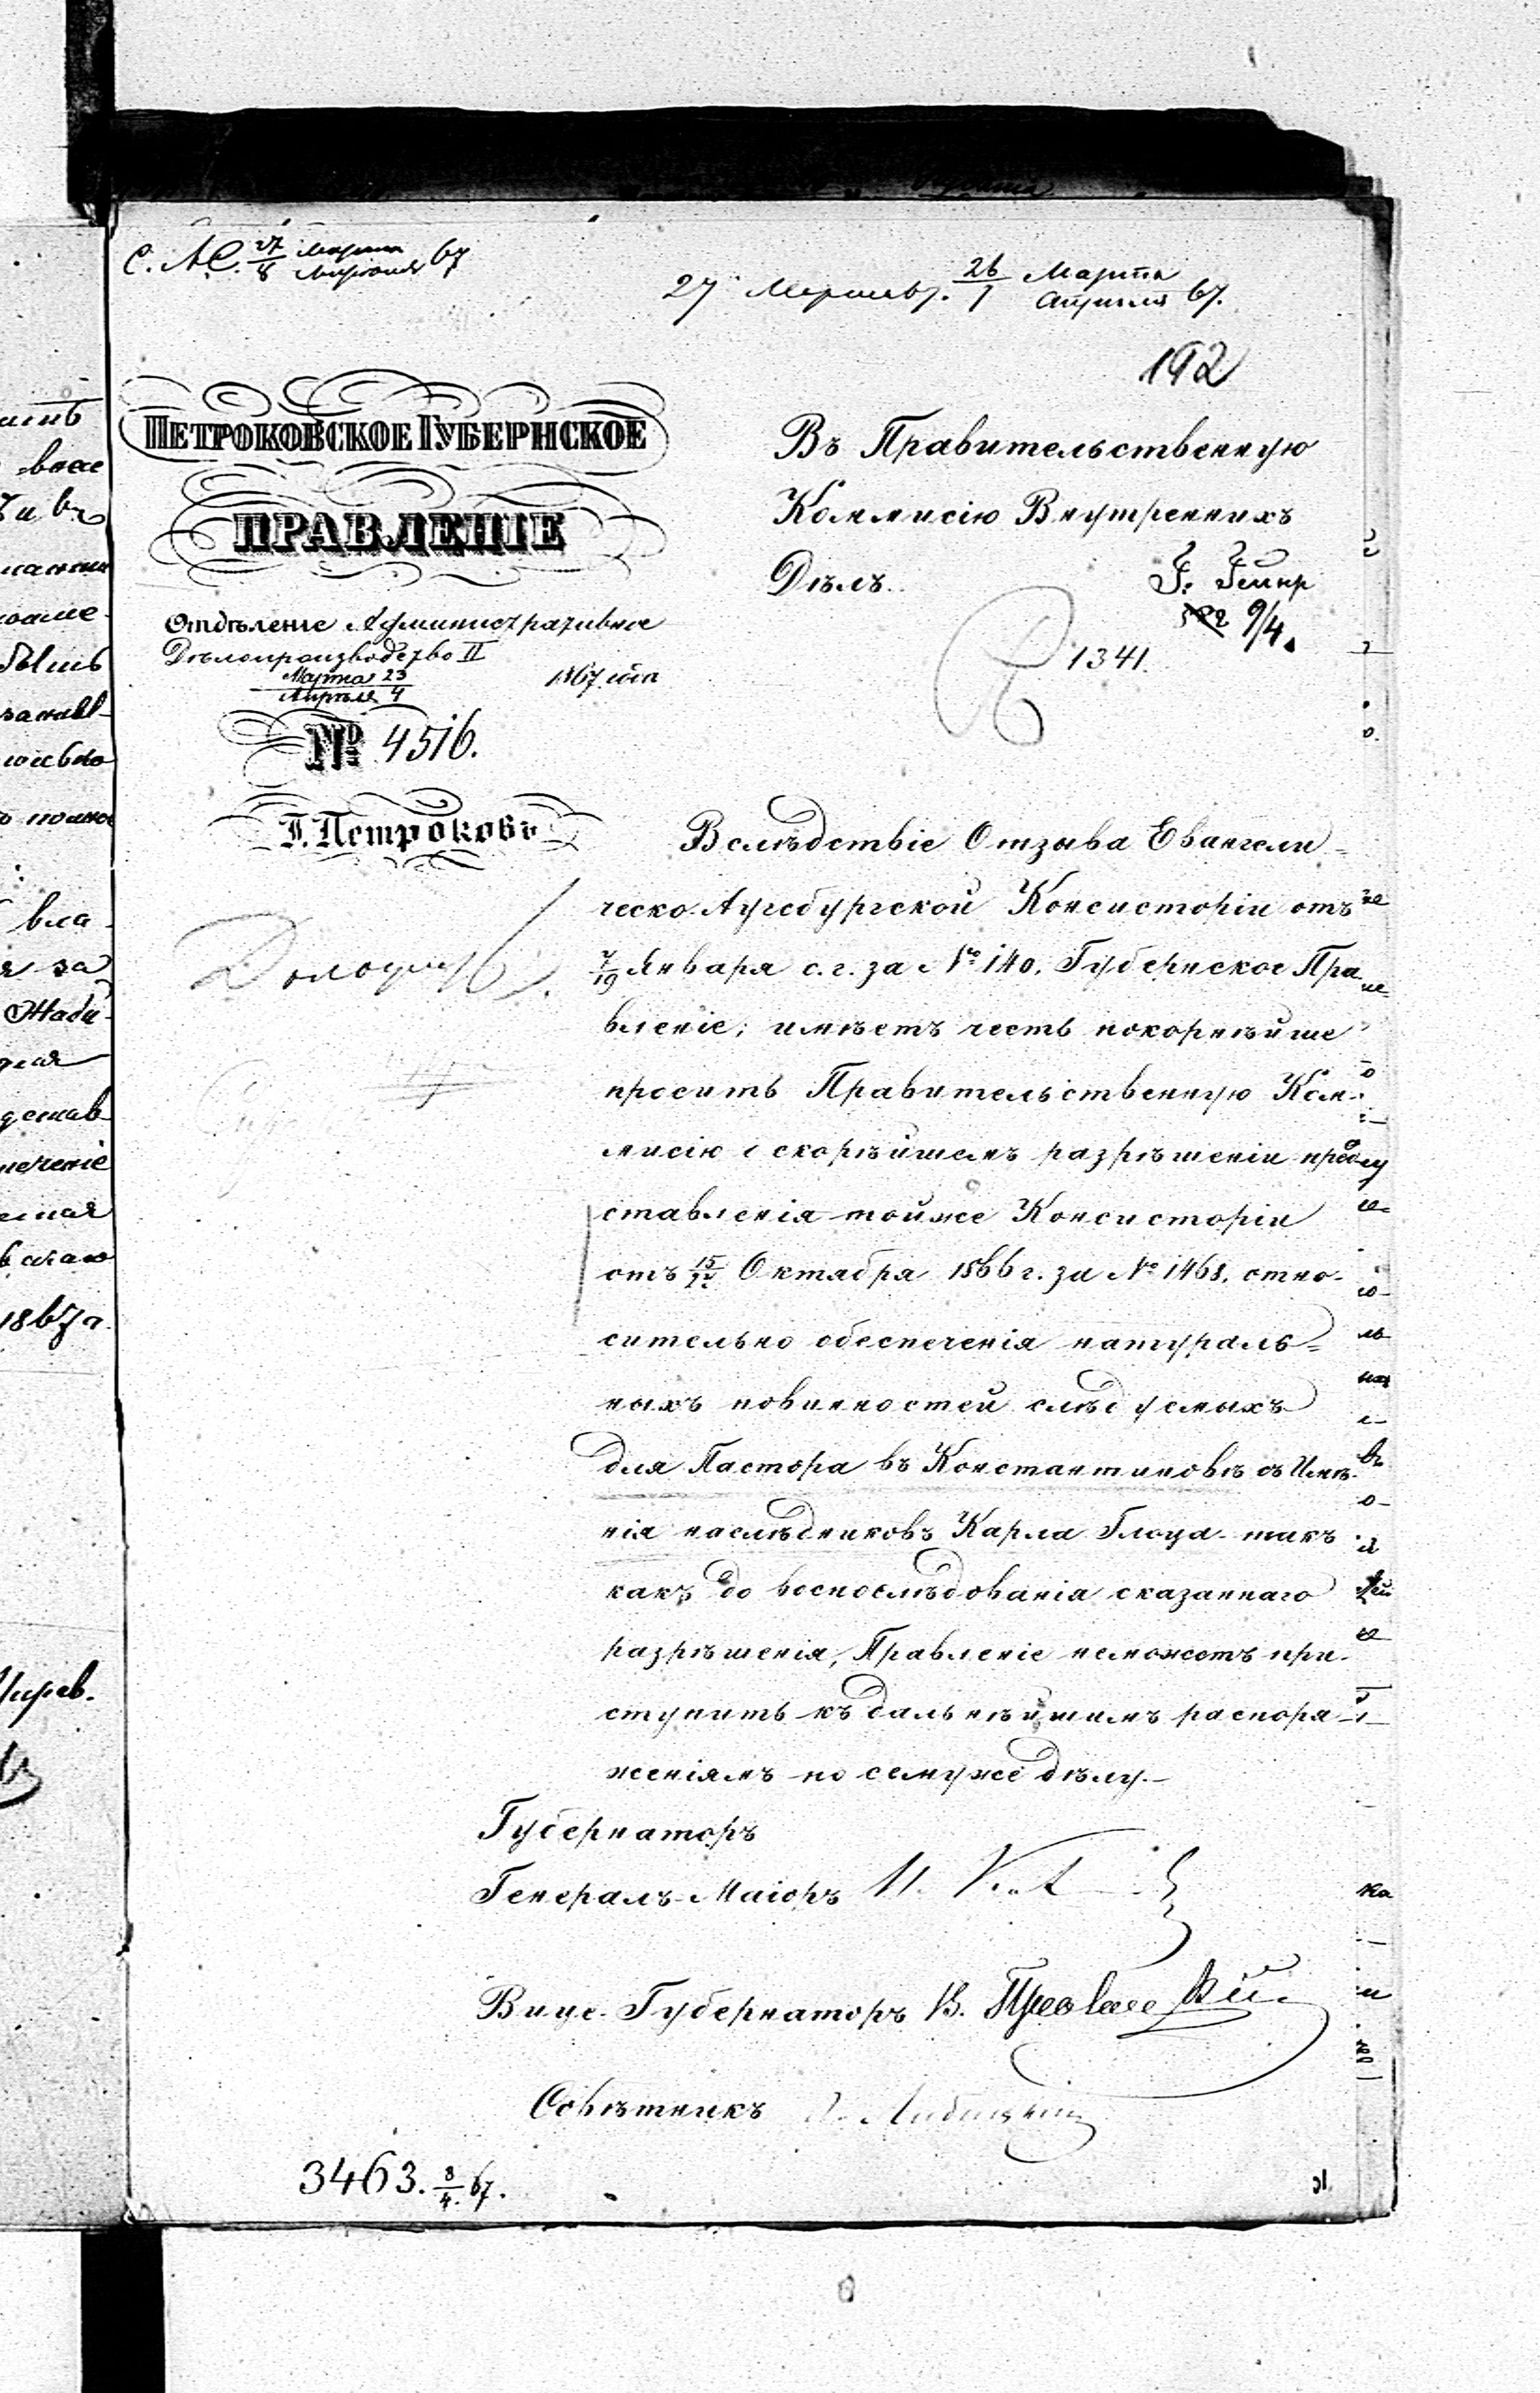 27 Марта 67. 26/7 Марта Апреля 67.
192
ПЕТРОКОВСКОЕ ГУБЕРНСКОЕ
ПРАВЛЕНІЕ
Отдѣленіе Административное
Дѣлопроизводство II
Марта 23
Апрѣля 4
1867 года
№ 4516.
Г. Петроковъ
Въ Правительственную
Коммисію Внутреннихъ
Дѣлъ.
9/4.
1341.
Вслѣдствіе Отзыва Евангели-
ческо-Аугсбургской Консисторіи отъ
7/19 Января с. г. за № 140, Губернское Пра-
вленіе, имѣетъ честь покорнѣйше
просить Правительственную Ком-
мисію о скорѣйшемъ разрѣшеніи пред-
ставленія тойже Консисторіи
отъ 15/27 Октября 1866 г. за № 1468, отно-
сительно обеспеченія натураль-
ныхъ повинностей слѣдуемыхъ
для Пастора въ Константиновѣ съ Имѣ-
нія наслѣдниковъ Карла Глоца такъ
какъ до воспослѣдованія сказаннаго
разрѣшенія, Правленіе неможетъ при-
ступить къ дальнѣйшимъ распоря-
женіямъ по семуже дѣлу.—
Губернаторъ
Генералъ-Маіоръ
Вице-Губернаторъ В.
Совѣтникъ
3463. 8/4. 67.